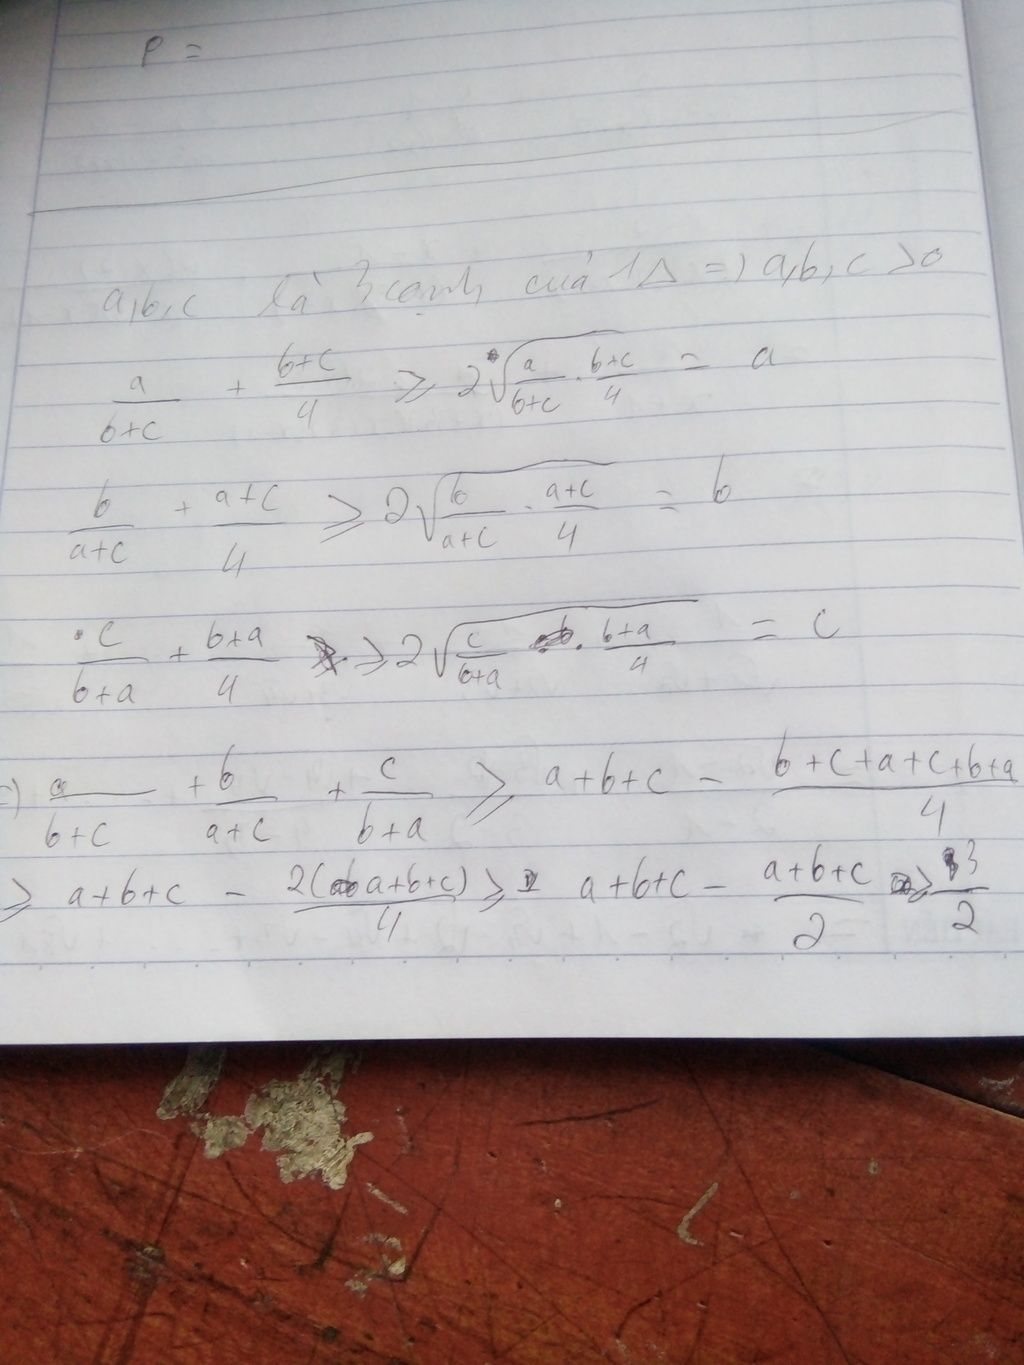 P =
a,b,c là 3 cạnh của 1Δ => a,b,c > 0
a/(b+c) + (b+c)/4 ⩾ 2√(a/(b+c) . (b+c)/4) = a
b/(a+c) + (a+c)/4 ⩾ 2√(b/(a+c) . (a+c)/4) = b
c/(b+a) + (b+a)/4 ⩾ 2√(c/(b+a) . (b+a)/4) = c
=) a/(b+c) + b/(a+c) + c/(b+a) ⩾ a+b+c - (b+c+a+c+b+a)/4
⩾ a+b+c - 2(a+b+c)/4 ⩾ a+b+c - (a+b+c)/2 ⩾ 3/2